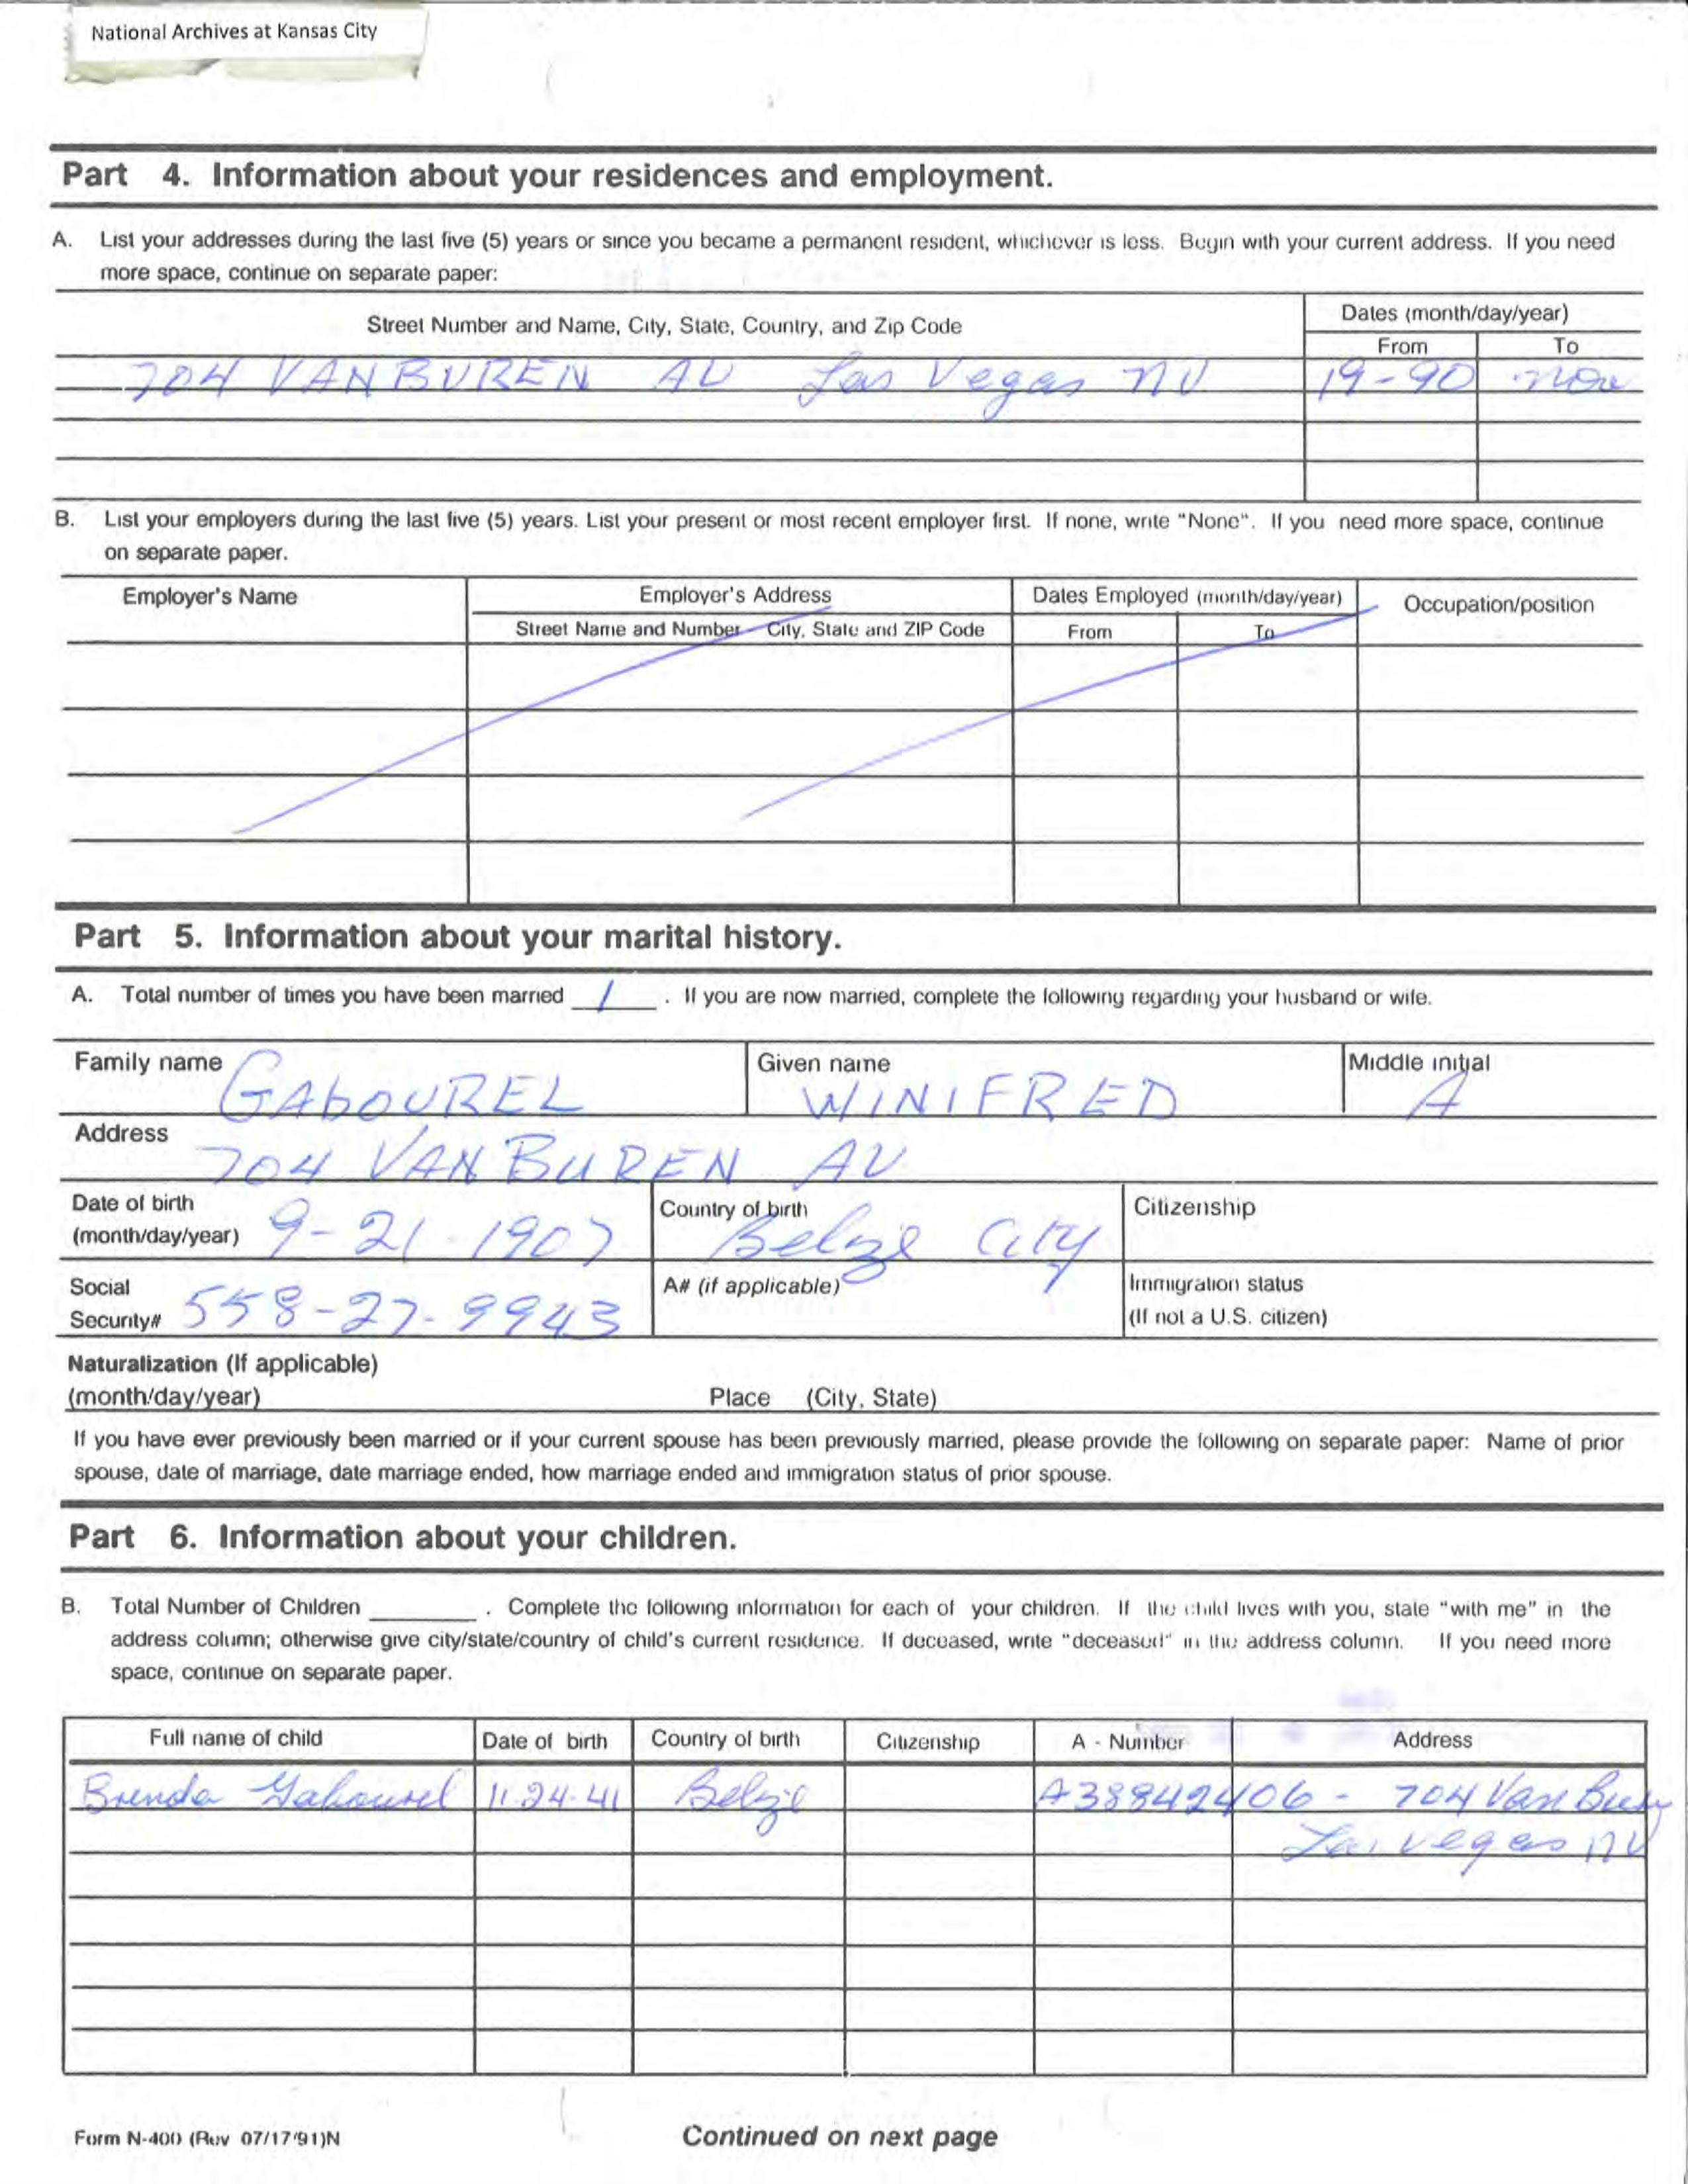 National Archives at Kansas City
Part 4. Information about your residences and employment.
A. List your addresses during the last five (5) years or since you became a permanent resident, whichever is less. Begin with your current address. If you need
more space, continue on separate paper:
Street Number and Name, City, State, Country, and Zip Code
Dates (month/day/year)
From To
704 VANBUREN AV Las Vegas NV 19-90 now
B. List your employers during the last five (5) years. List your present or most recent employer first. If none, write "None". If you need more space, continue
on separate paper.
Employer's Name Employer's Address Dates Employed (month/day/year) Occupation/position
Street Name and Number - City, State and ZIP Code From To
Part 5. Information about your marital history.
A. Total number of times you have been married 1 . If you are now married, complete the following regarding your husband or wife.
Family name GAbOUREL Given name WINIFRED Middle initial A
Address 704 VAN BUREN AV
Date of birth
(month/day/year) 9-21-1907 Country of birth Belize City Citizenship
Social
Security# 558-27-9943 A# (if applicable) Immigration status
(If not a U.S. citizen)
Naturalization (If applicable)
(month/day/year) Place (City, State)
If you have ever previously been married or if your current spouse has been previously married, please provide the following on separate paper: Name of prior
spouse, date of marriage, date marriage ended, how marriage ended and immigration status of prior spouse.
Part 6. Information about your children.
B. Total Number of Children ________ . Complete the following information for each of your children. If the child lives with you, state "with me" in the
address column; otherwise give city/state/country of child's current residence. If deceased, write "deceased" in the address column. If you need more
space, continue on separate paper.
Full name of child Date of birth Country of birth Citizenship A - Number Address
Brenda Gabourel 11-24-41 Belize A38842406 - 704 Van Bury
Las Vegas NV
Form N-400 (Rev 07/17/91)N Continued on next page